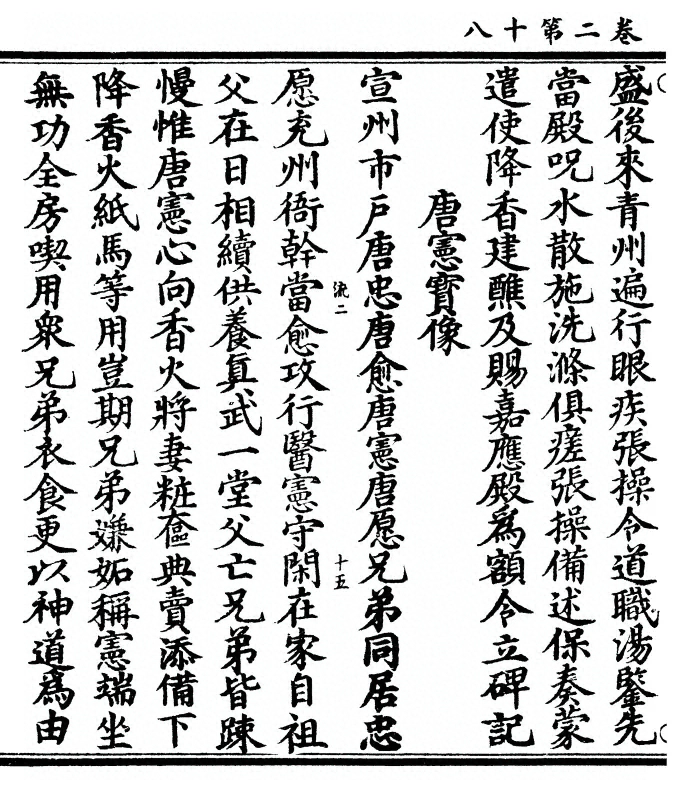 卷二第十八
盛後來青州遍行眼疾張操令道職湯鑒先
當殿呪水散施洗滌俱瘥張操備述保奏蒙
遣使降香建醮及賜嘉應殿爲額令立碑記
唐憲寶像
宣州市戶唐忠唐愈唐憲唐愿兄弟同居忠
愿充州衙幹當愈攻行醫憲守閑在家自祖
流二
十五
父在日相續供養真武一堂父亡兄弟皆踈
慢惟唐憲心向香火將妻粧奩典賣添備下
降香火紙馬等用豈期兄弟嫌妬稱憲端坐
無功全房喫用衆兄弟衣食更以神道爲由